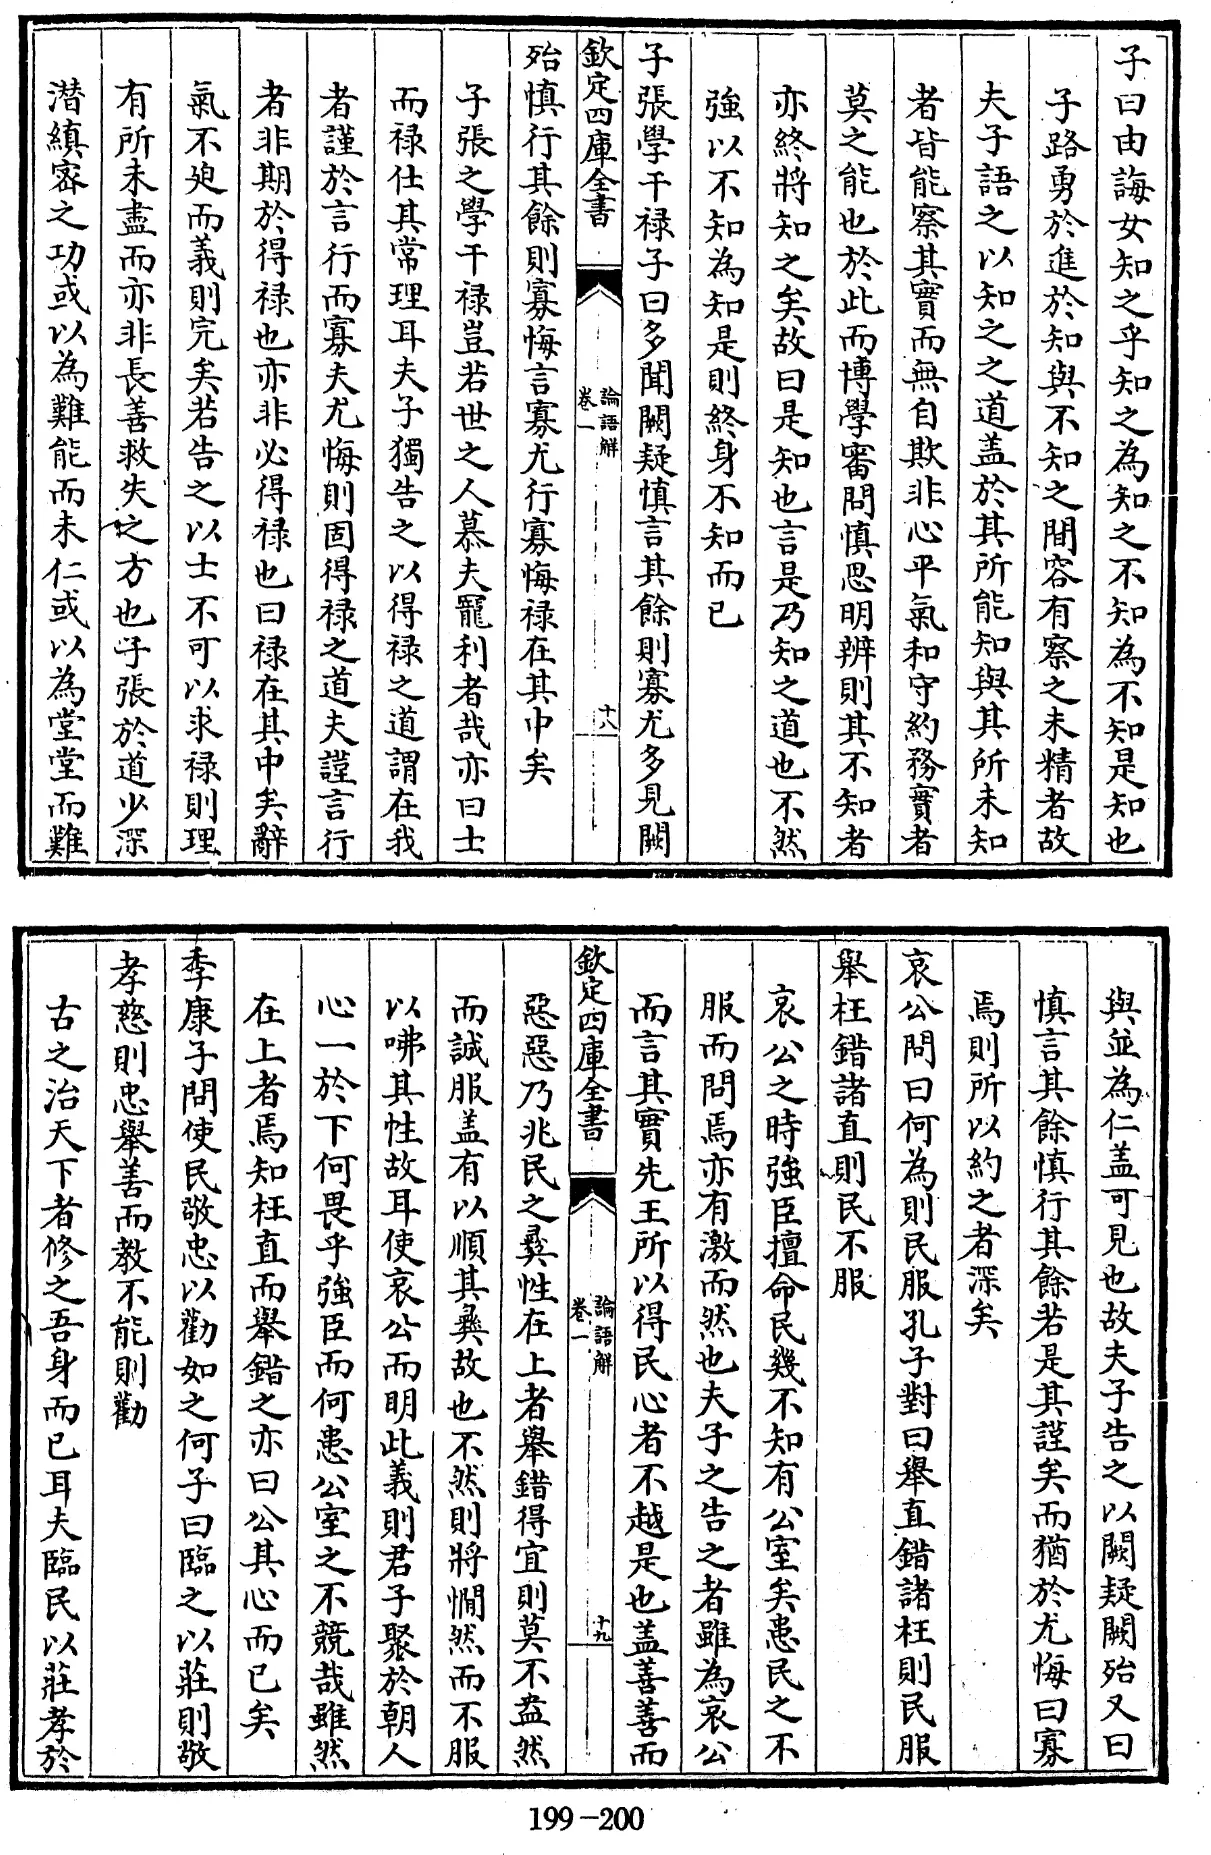 子曰由誨女知之乎知之為知之不知為不知是知也
子路勇於進於知與不知之間容有察之未精者故
夫子語之以知之之道盖於其所能知與其所未知
者皆能察其實而無自欺非心平氣和守約務實者
莫之能也於此而博學審問慎思明辨則其不知者
亦終將知之矣故曰是知也言是乃知之道也不然
強以不知為知是則終身不知而已
子張學干禄子曰多聞闕疑慎言其餘則寡尤多見闕
欽定四庫全書
論語解
卷一
十八
殆慎行其餘則寡悔言寡尤行寡悔禄在其中矣
子張之學干禄豈若世之人慕夫寵利者哉亦曰士
而禄仕其常理耳夫子獨告之以得禄之道謂在我
者謹於言行而寡夫尤悔則固得禄之道夫謹言行
者非期於得禄也亦非必得禄也曰禄在其中矣辭
氣不廹而義則完矣若告之以士不可以求禄則理
有所未盡而亦非長善救失之方也子張於道少深
潜縝密之功或以為難能而未仁或以為堂堂而難
與並為仁盖可見也故夫子告之以闕疑闕殆又曰
慎言其餘慎行其餘若是其謹矣而猶於尤悔曰寡
焉則所以約之者深矣
哀公問曰何為則民服孔子對曰舉直錯諸枉則民服
舉枉錯諸直則民不服
哀公之時強臣擅命民幾不知有公室矣患民之不
服而問焉亦有激而然也夫子之告之者雖為哀公
而言其實先王所以得民心者不越是也盖善善而
欽定四庫全書
論語解
卷一
十九
惡惡乃兆民之彞性在上者舉錯得宜則莫不盎然
而誠服盖有以順其彞故也不然則將憪然而不服
以咈其性故耳使哀公而明此義則君子聚於朝人
心一於下何畏乎強臣而何患公室之不競哉雖然
在上者焉知枉直而舉錯之亦曰公其心而已矣
季康子問使民敬忠以勸如之何子曰臨之以莊則敬
孝慈則忠舉善而教不能則勸
古之治天下者修之吾身而已耳夫臨民以莊孝於
199-200